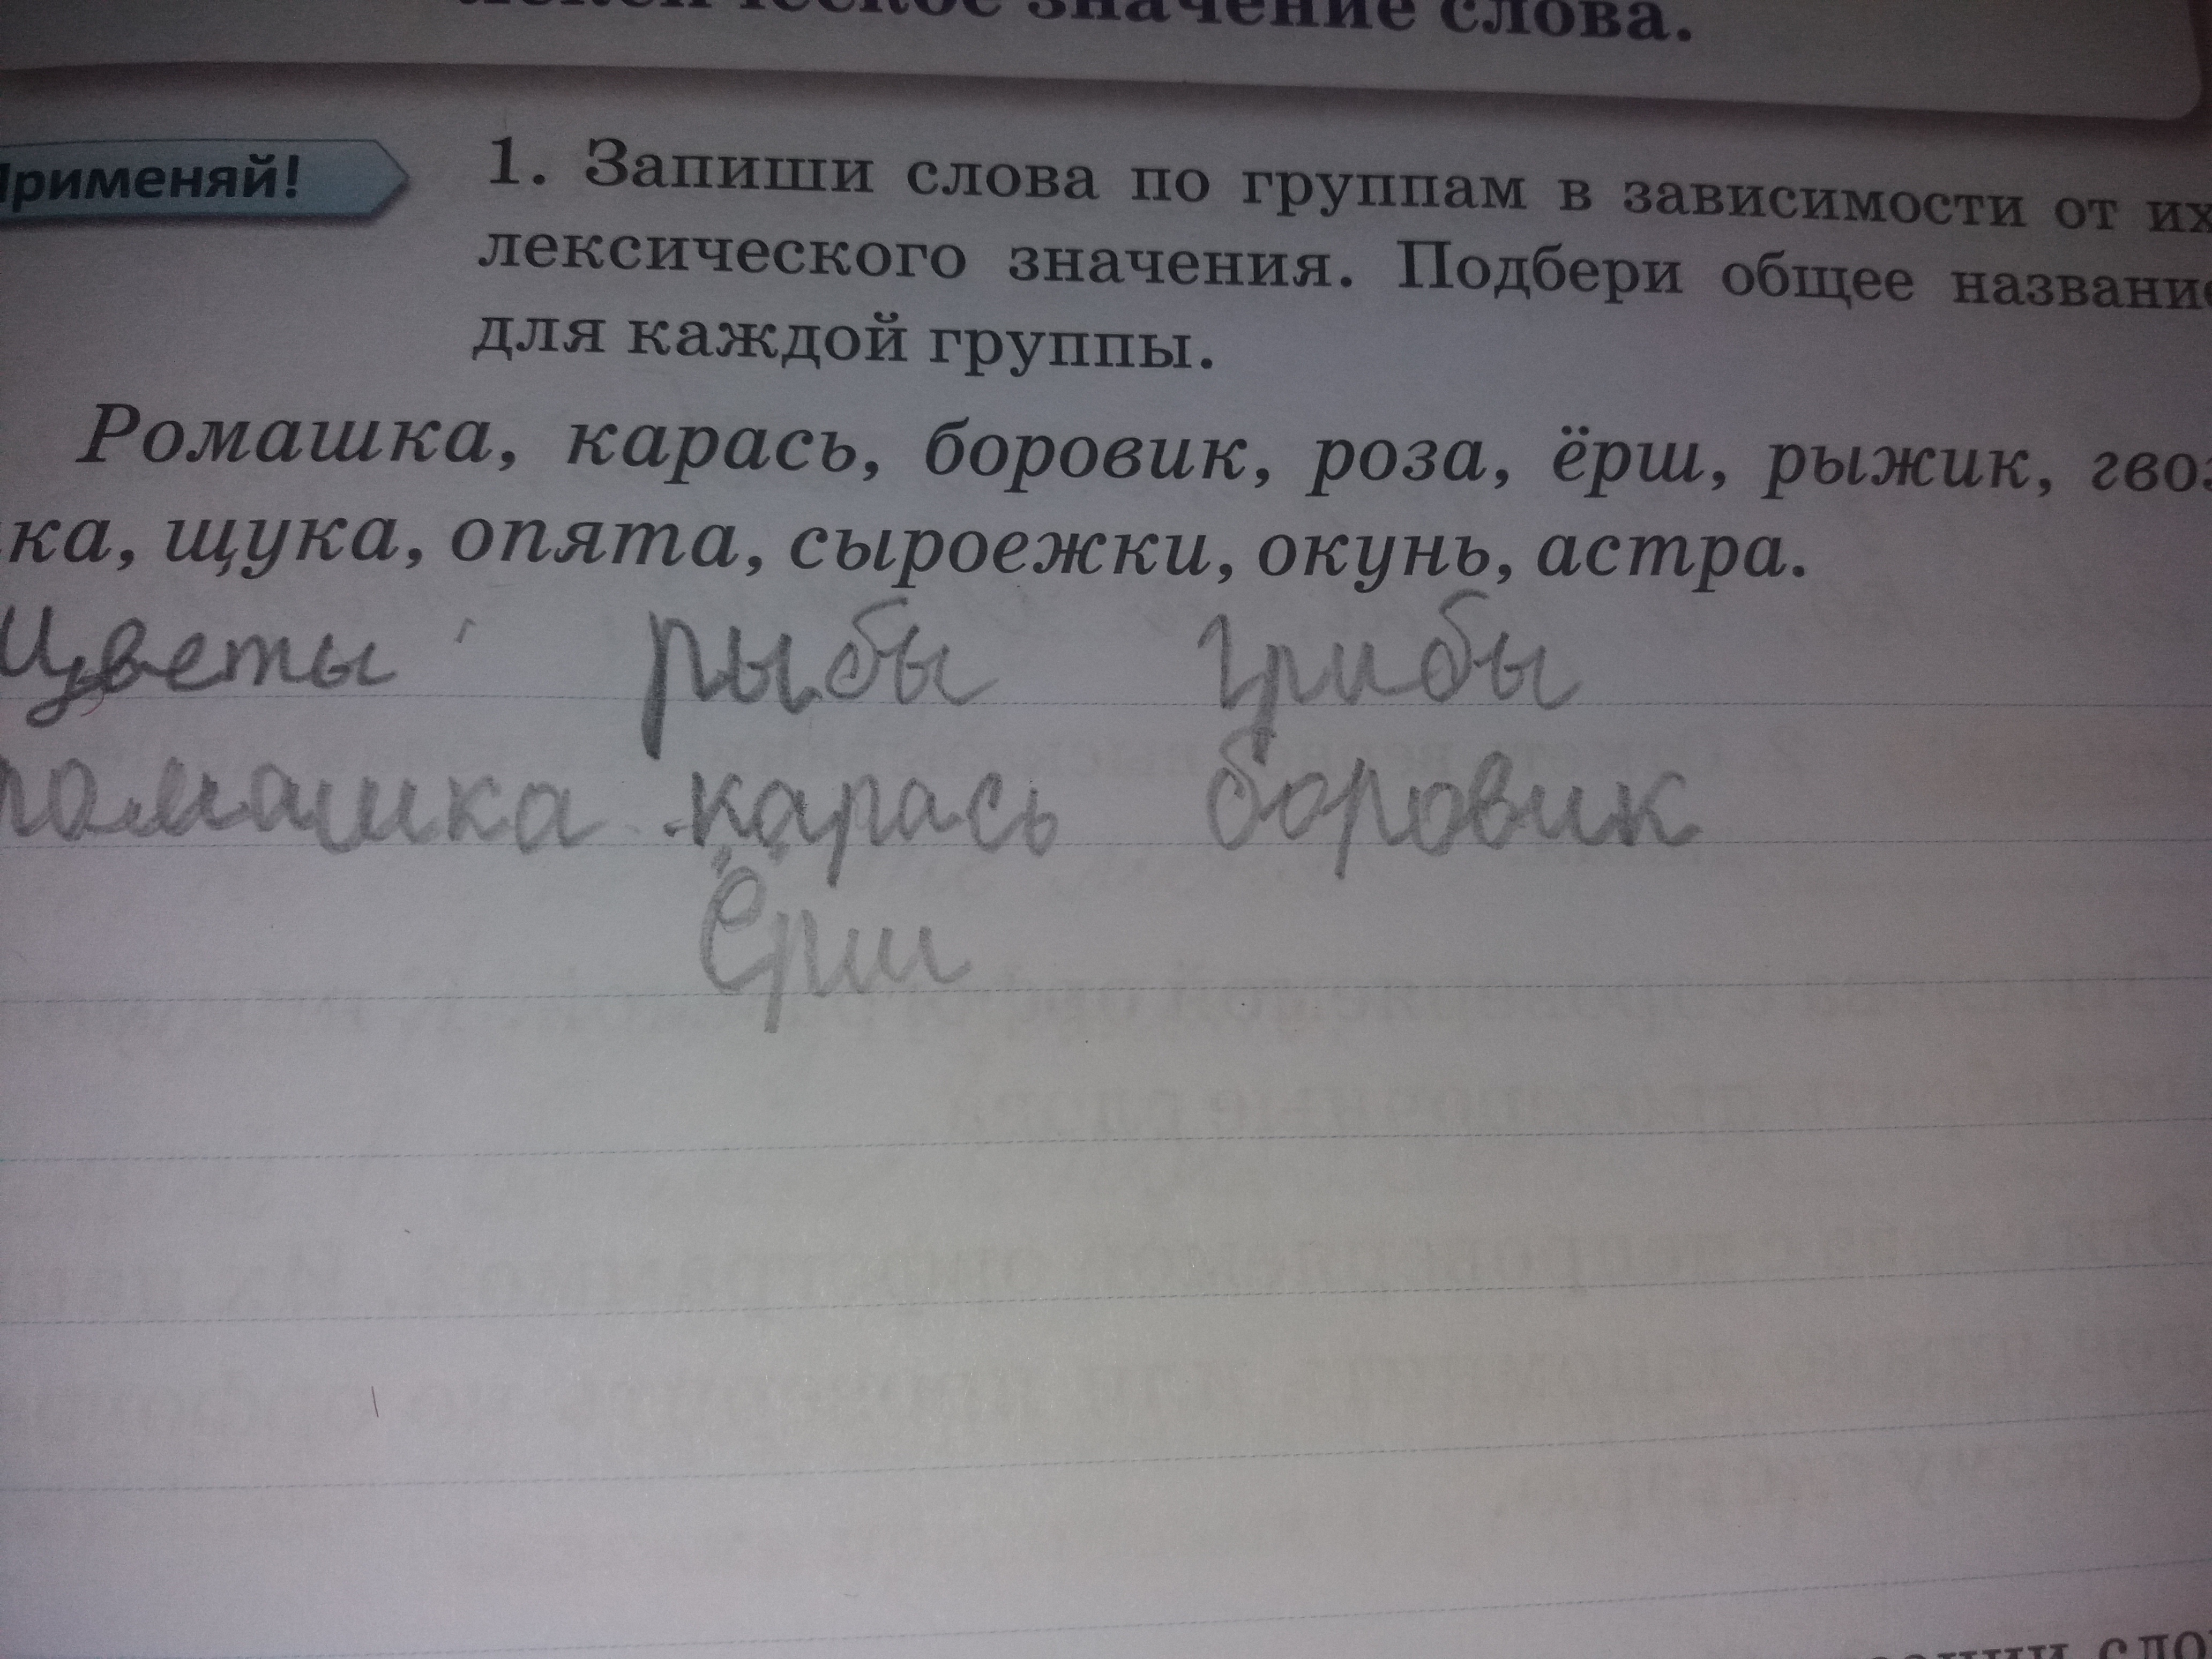 значение слова.
Применяй!
1. Запиши слова по группам в зависимости от их
лексического значения. Подбери общее название
для каждой группы.
Ромашка, карась, боровик, роза, ёрш, рыжик, гвоз
ка, щука, опята, сыроежки, окунь, астра.
Цветы рыбы грибы
ромашка карась боровик
Ёрш